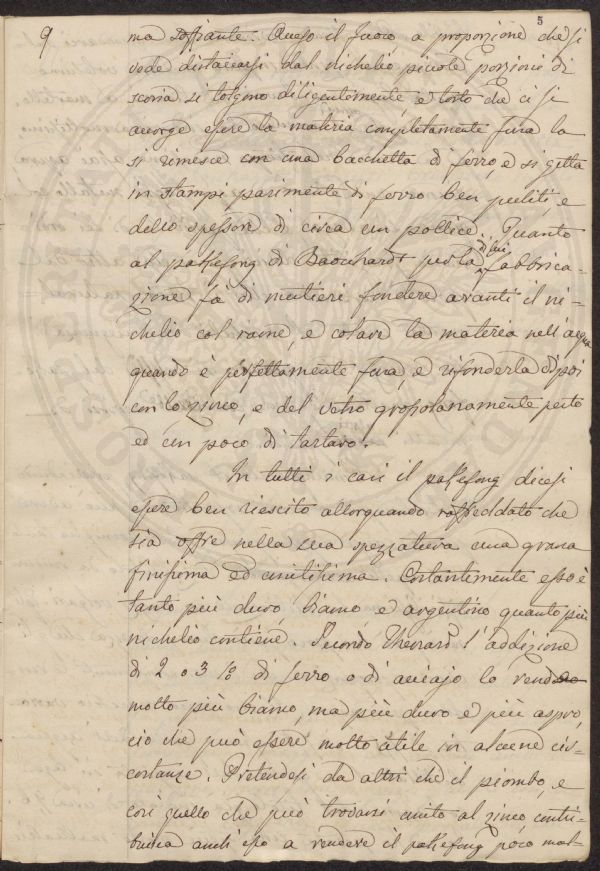 9
5
ma soffiante. Acceso il fuoco, a proporzione che si
vede distaccarsi dal nichelio piccole porzioni di
scoria si tolgono diligentemente, e tosto che ci si
accorge essere la materia completamente fusa la
si rimesce con una bacchetta di ferro, e si getta
in stampi parimente di ferro ben puliti, e
dello spessore di circa un pollice. Quanto
al pakefong di per la di lui fabbrica-
zione fa di mestieri fondere avanti il ni-
chelio col rame, e colare la materia nell'acqua
quando è perfettamente fusa, e rifonderla di poi
con lo zinco, e del vetro grossolanamente pesto
ed un poco di tartaro.
In tutti i casi il pakefong dicesi
essere ben riescito allorquando raffreddato che
sia offre nella sua spezzatura una grana
finissima ed unitissima. Costantemente esso è
tanto più duro, bianco e argentino quanto più
nichelio contiene. Secondo Thenard l'addizione
di 2 o 3 % di ferro o di acciajo lo rende
molto più bianco, ma più duro e più aspro,
ciò che può essere molto utile in alcune cir-
costanze. Pretendesi da altri che il piombo, e
così quello che può trovarsi unito al zinco, contri-
buisca anch'esso a rendere il pakefong poco mal-